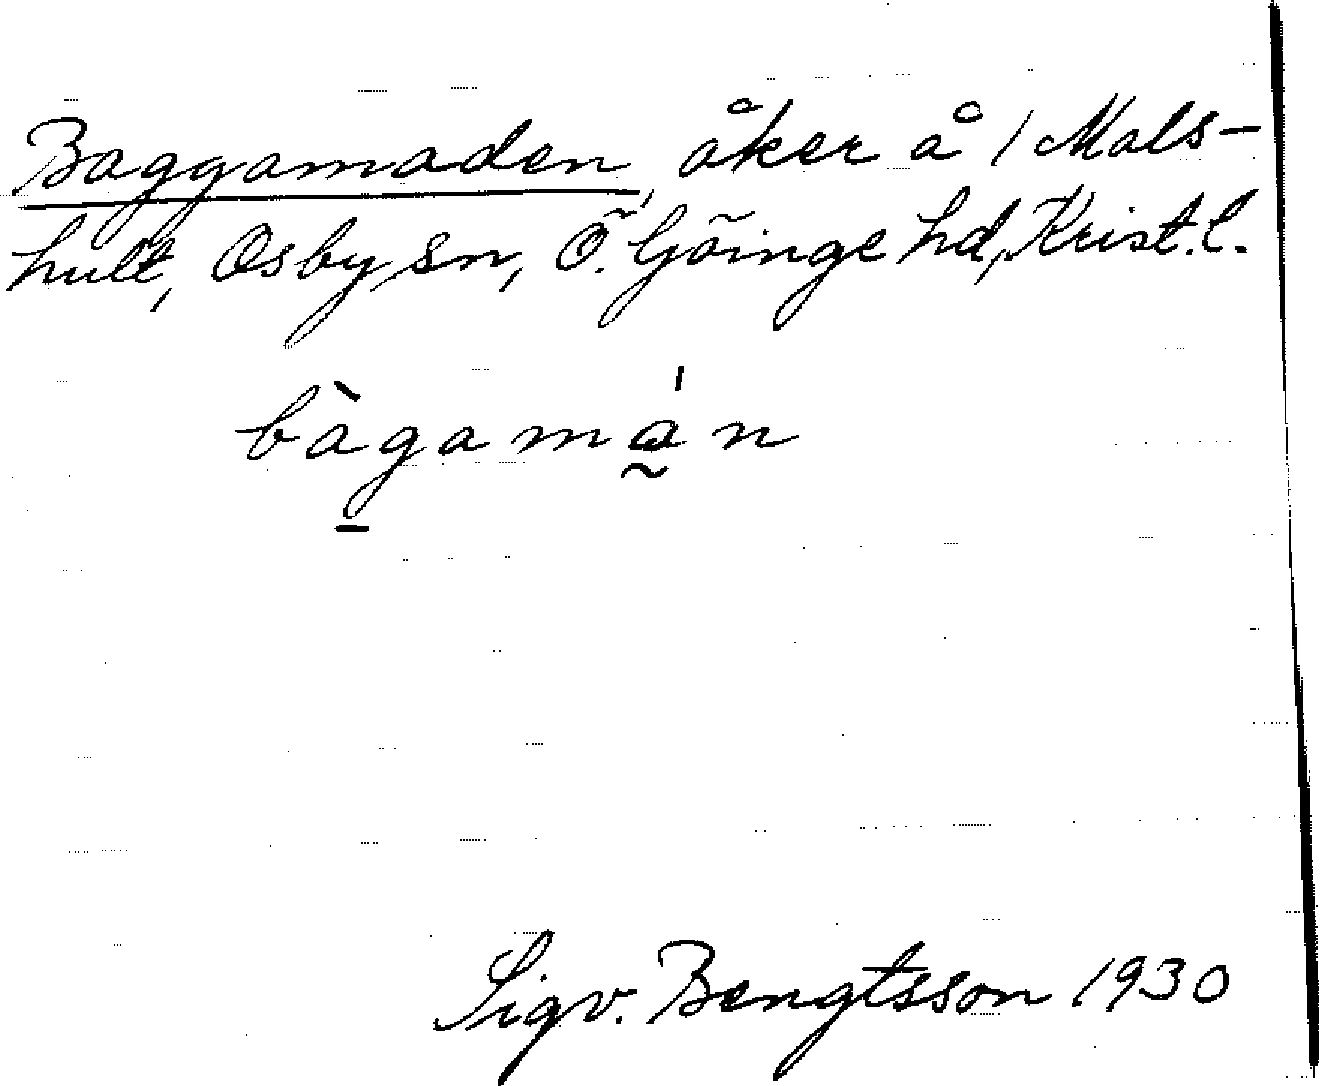 Baggamaden, åker å 1 Mals-
hult, Osby sn, Ö. Göinge hd, Krist. l.
bàgamán
Sigv. Bengtsson 1930